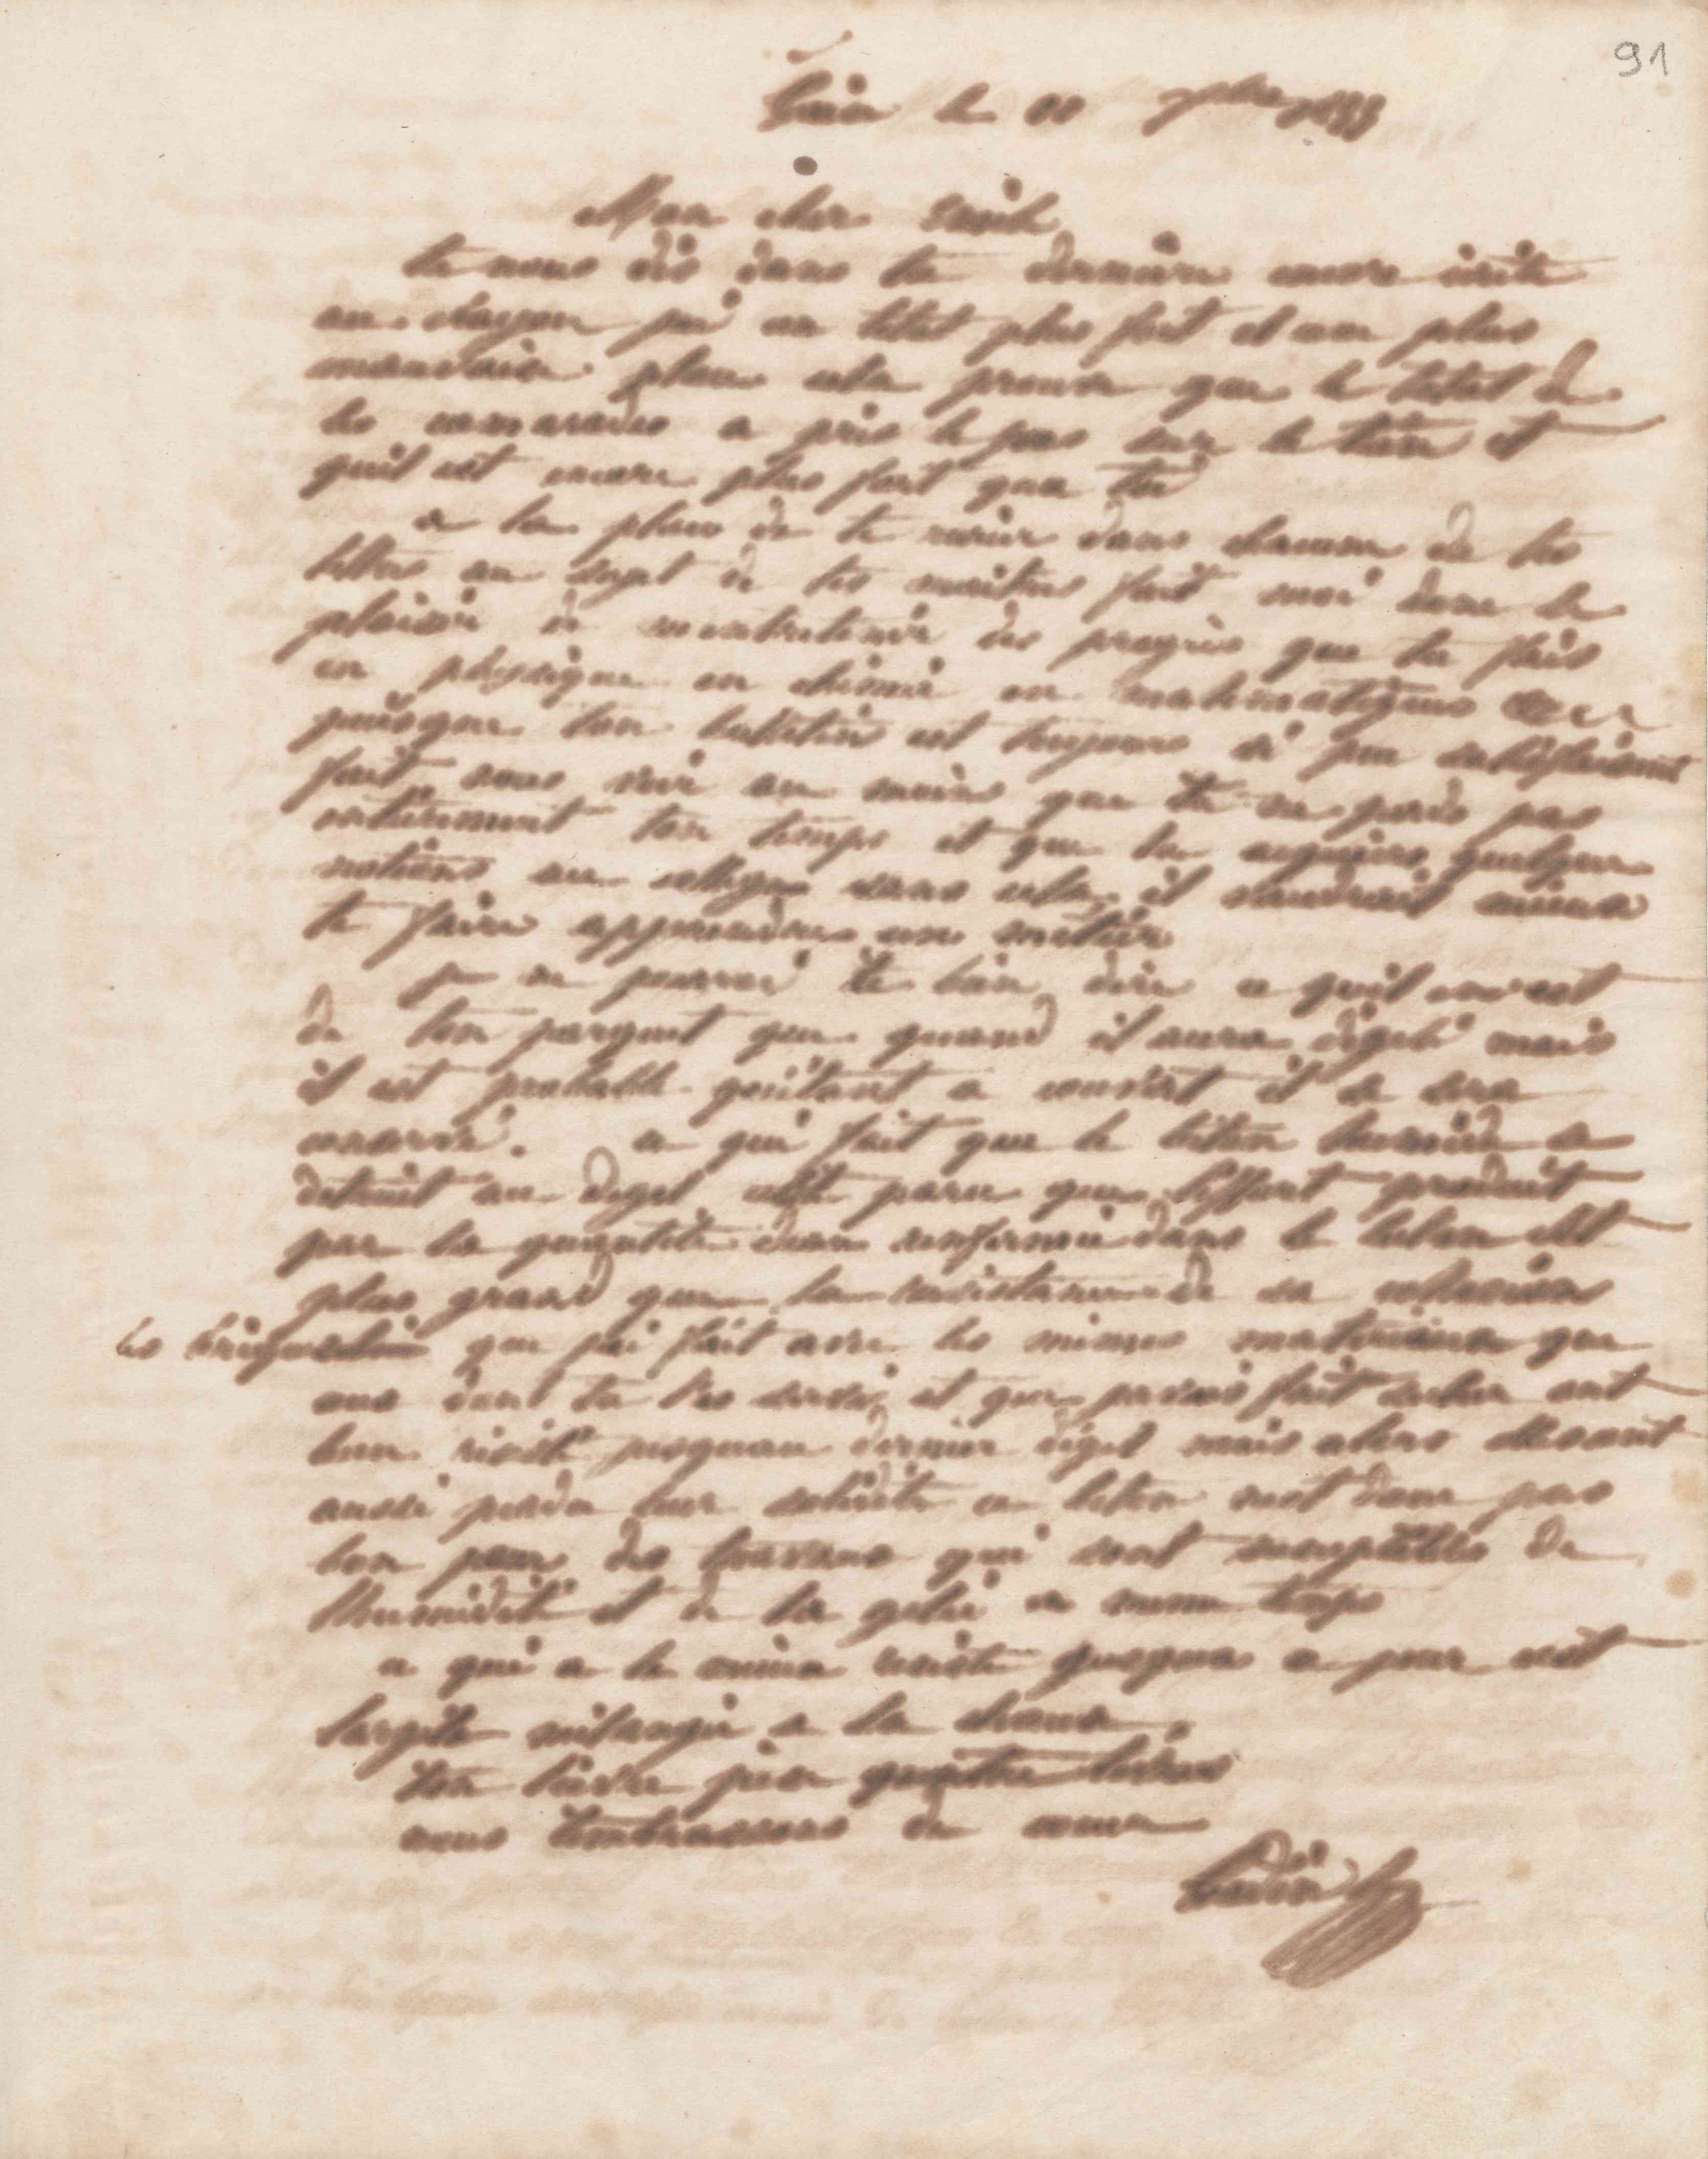 91
le 11 1855
Mon cher Emile
tu nous dis dans ta dernière encore
au crayon j'ai un plus fort et une plus
mauvaise place cela prouve que le de
tes camarades a pris le pas sur le tien et
quil est encore plus fort que toi
a la place de te dans chacune de tes
letres au sujet de tes maitres fait moi donc le
plaisir de mentretenir des progrès que tu fais
en physique en chimie en mathematiques
puisque ton buletin est toujours si peu satisfaisant
fait nous voir au moins que tu ne perds pas
entièrement ton temps et que tu acquiers quelques
notions au collège sans cela il vaudrait mieux
te faire apprendre un métier
je ne pourrai te bien dire ce quil en est
de ton parquet que quand il aura dégelé mais
il est probable quétant a couvert il se sera
conservé. ce qui fait que le béton humide se
detruit au degel cest parce que l'effort produit
par la quantité deau renfermée dans le beton est
plus grand que la resistance de sa cohesion
les que jai fait avec les mêmes materiaux que
ceux dont tu tes servi et que javais fait secher ont
bien résisté jusquau dernier dégel mais alors elles ont
aussi perdu leur solidité ce béton nest donc pas
bon pour des travaux qui sont susceptibles de
lhumidité et de la gelée en meme temps
ce qui a le mieux resisté jusqua ce jour cest
largile mélangée a la chaux.
ton pèse quatre livres
nous tembrassons de coeur
Godin